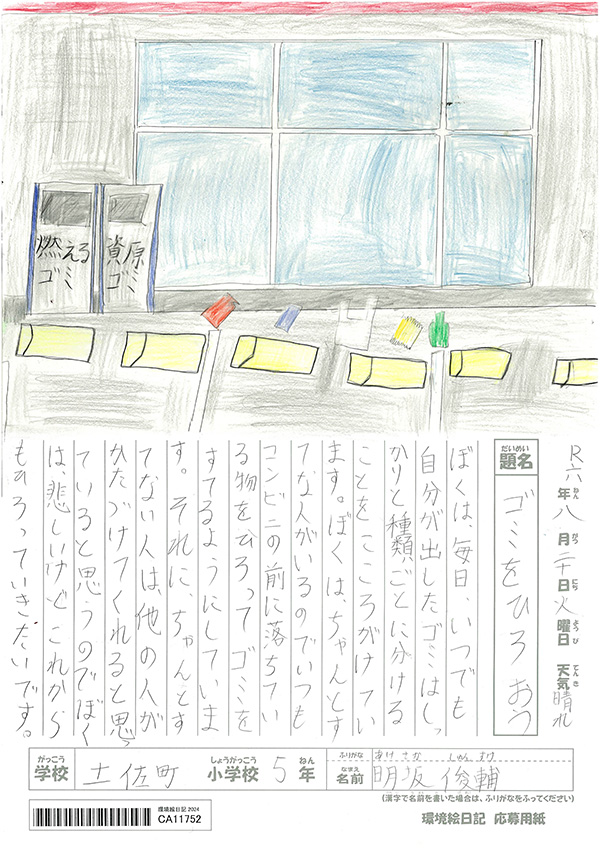 燃える
ゴミ
資原
ゴミ
R六年八月二十日火曜日 天気晴れ
ねん
がつ
にち
ようび
てんき
だいめい
題名
ゴミをひろおう
ぼくは、毎日、いつでも
自分が出したゴミはしっ
かりと種類ごとに分ける
ことをこころがけてい
ます。ぼくは、ちゃんとす
てな人がいるのでいつも
コンビニの前に落ちてい
る物をひろってゴミを
すてるようにしていま
す。それに、ちゃんとす
てない人は、他の人が
かたづけてくれると思っ
ていると思うのでぼく
は、悲しいけどこれから
もひろっていきたいです。
がっこう
学校
土佐町
しょうがっこう
小学校
5
ねん
年
ふりがな
あけさか しゅんすけ
なまえ
名前
明坂 俊輔
(漢字で名前を書いた場合は、ふりがなをふってください)
環境絵日記 2024
CA11752
環境絵日記 応募用紙